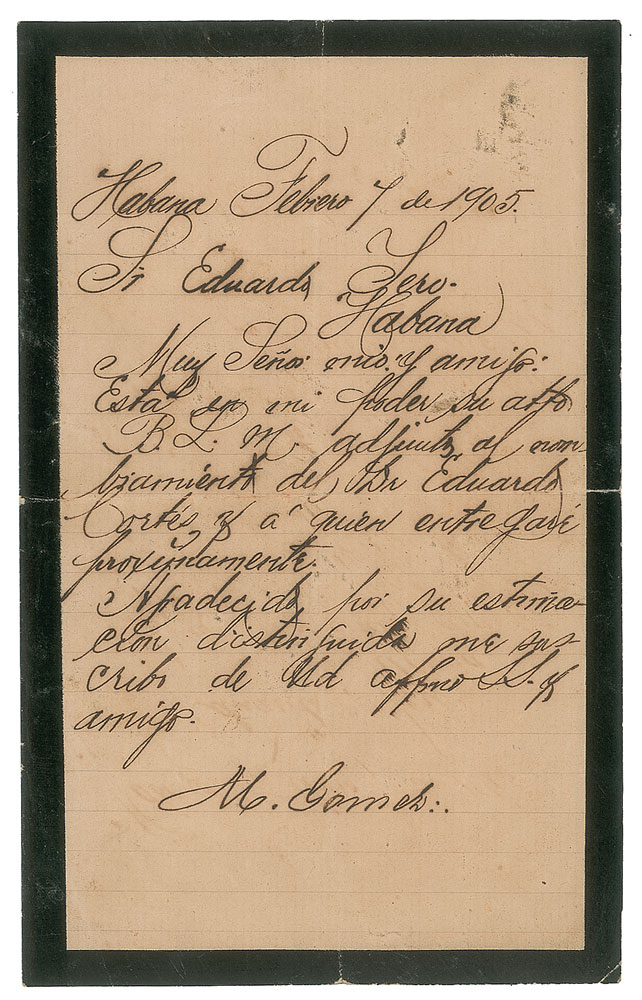 Habana Febrero 7 de 1905.
Sr Eduardo Yero.
Habana
Muy Señor mio y amigo:
Está en mi poder su atto
B. L. M. adjunto al nom-
bramiento del Dr Eduardo
Cortés y á quien entregaré
proximamente.
Agradecido por su estima-
ción distinguida me sus-
cribo de Ud affmo S.S. y
amigo.
M. Gomez:.